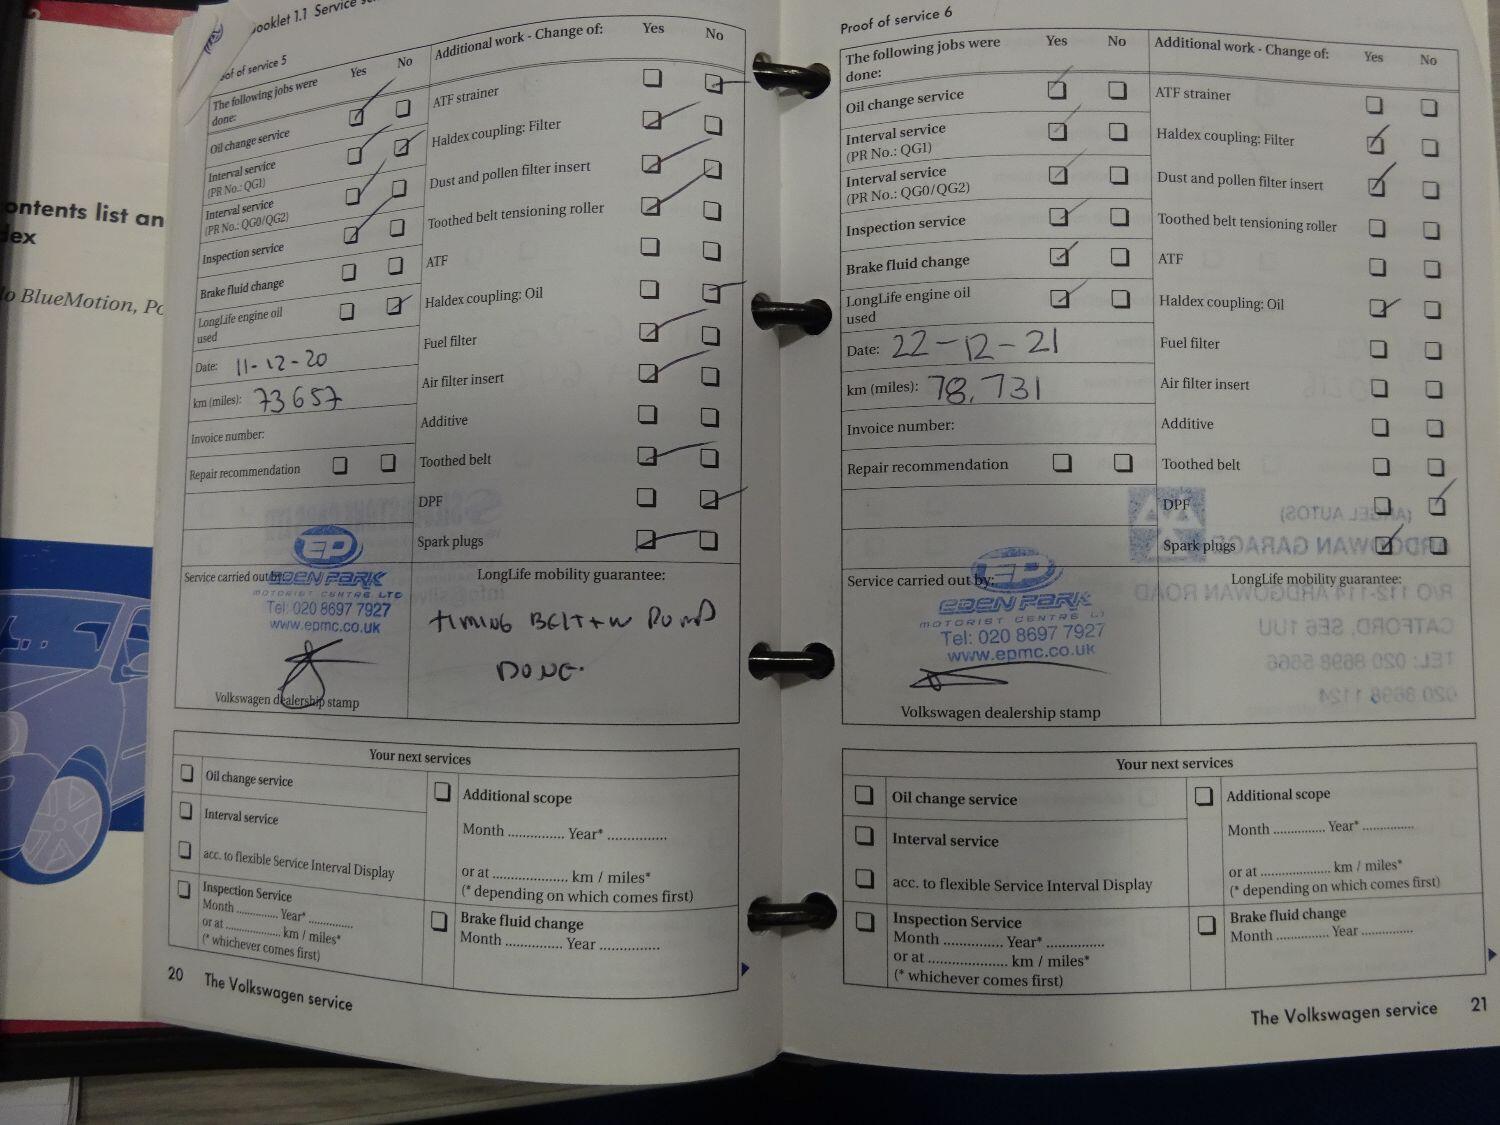 ontents list an
dex
o BlueMotion, Po
ooklet 1.1 Service
of of service 5
The following jobs were done: Yes No
Oil change service
Interval service
(PR No.: QG1)
Interval service
(PR No.: QG0/QG2)
Inspection service
Brake fluid change
LongLife engine oil
used
Date: 11-12-20
km (miles): 73657
Invoice number:
Repair recommendation
EP
EDEN PARK
MOTORIST CENTRE LTD
Tel: 020 8697 7927
www.epmc.co.uk
Service carried out by:
Volkswagen dealership stamp
Additional work - Change of: Yes No
ATF strainer
Haldex coupling: Filter
Dust and pollen filter insert
Toothed belt tensioning roller
ATF
Haldex coupling: Oil
Fuel filter
Air filter insert
Additive
Toothed belt
DPF
Spark plugs
LongLife mobility guarantee:
TIMING BELT + W PUMP
DONE.
Your next services
Oil change service
Interval service
acc. to flexible Service Interval Display
Inspection Service
Month .............. Year* ..............
or at .................. km / miles*
(* whichever comes first)
Additional scope
Month .............. Year* ..............
or at .................. km / miles*
(* depending on which comes first)
Brake fluid change
Month .............. Year ..............
20 The Volkswagen service
Proof of service 6
The following jobs were
done: Yes No
Oil change service
Interval service
(PR No.: QG1)
Interval service
(PR No.: QG0/QG2)
Inspection service
Brake fluid change
LongLife engine oil
used
Date: 22-12-21
km (miles): 78,731
Invoice number:
Repair recommendation
Service carried out by:
EP
EDEN PARK
MOTORIST CENTRE
Tel: 020 8697 7927
www.epmc.co.uk
Volkswagen dealership stamp
Additional work - Change of: Yes No
ATF strainer
Haldex coupling: Filter
Dust and pollen filter insert
Toothed belt tensioning roller
ATF
Haldex coupling: Oil
Fuel filter
Air filter insert
Additive
Toothed belt
DPF
Spark plugs
LongLife mobility guarantee:
(ANGEL AUTOS)
ARDGOWAN GARAGE
R/O 112-114 ARDGOWAN ROAD
CATFORD, SE6 1UU
TEL: 020 8698 5666
020 8698 1124
Your next services
Oil change service
Interval service
acc. to flexible Service Interval Display
Inspection Service
Month .............. Year* ..............
or at .................. km / miles*
(* whichever comes first)
Additional scope
Month .............. Year* ..............
or at .................. km / miles*
(* depending on which comes first)
Brake fluid change
Month .............. Year ..............
The Volkswagen service 21